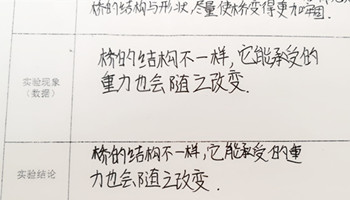 桥的结构与形状,尽量使桥变得更加牢固.
实验现象
(数据)
桥的结构不一样,它能承受的
重力也会随之改变.
实验结论
桥的结构不一样,它能承受的重
力也会随之改变.